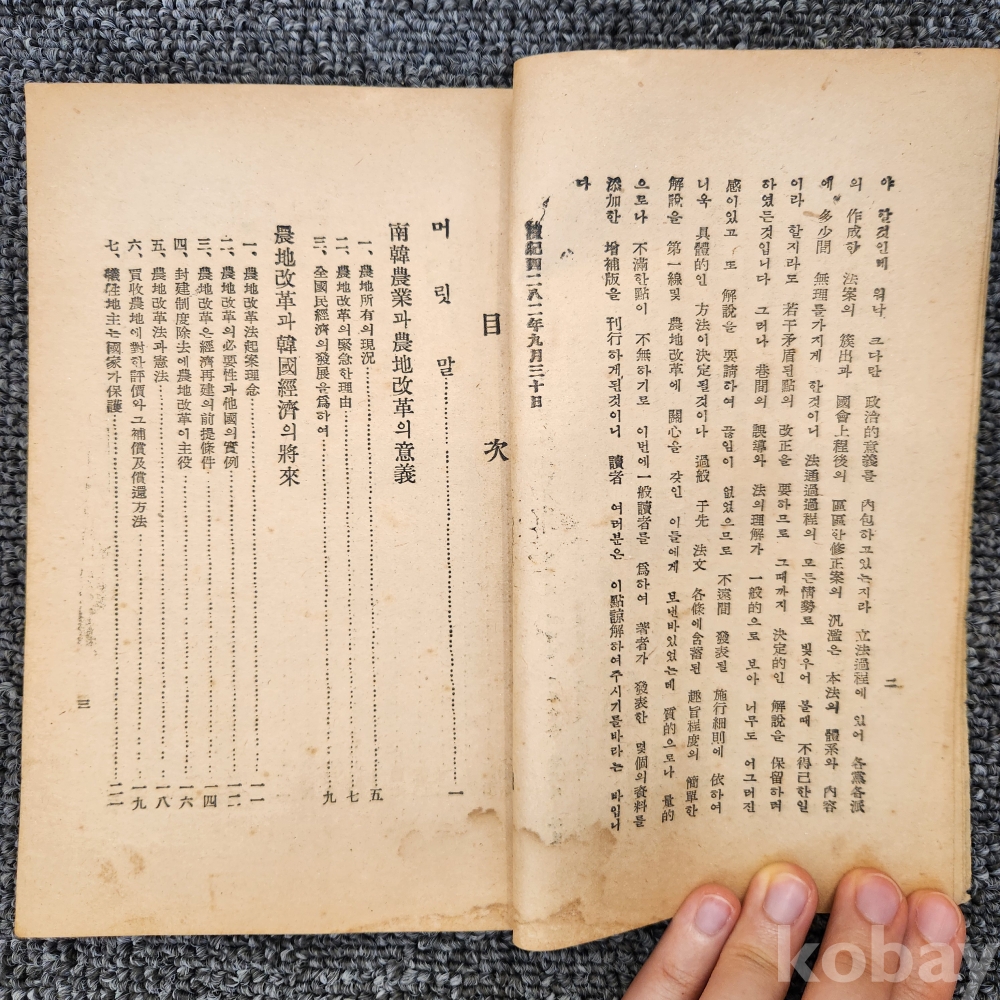 二
야 할것인데 워낙 크다란 政治的意義를 內包하고있는지라 立法過程에 있어 各黨各派
의 作成한 法案의 簇出과 國會上程後의 區區한修正案의 汎濫은 本法의 體系와 內容
에 多少間 無理를가지게 한것이니 法通過過程의 모든情勢로 빛우어 볼때 不得已한일
이라 할지라도 若干矛盾된點의 改正을 要하므로 그때까지 決定的인 解說을 保留하려
하였든것입니다 그러나 巷間의 誤導와 法의理解가 一般的으로 보아 너무도 어그러진
感이있고 또 解說을 要請하여 끊임이 없었으므로 不遠間 發表될 施行細則에 依하여
더욱 具體的인 方法이決定될것이나 過般 于先 法文 各條에含蓄된 趣旨程度의 簡單한
解說을 第一線및 農地改革에 關心을 갖인 이들에게 보낸바있었는데 質的으로나 量的
으로나 不滿한點이 不無하기로 이번에一般讀者를 爲하여 著者가 發表한 몇個의資料를
添加한 增補版을 刊行하게된것이니 讀者 여러분은 이點諒解하여주시기를바라는 바입니
다
檀紀四二八二年九月三十日
目 次
머 릿 말 一
南韓農業과農地改革의意義
一、農地所有의現況 五
二、農地改革의緊急한理由 七
三、全國民經濟의發展을爲하여 九
農地改革과韓國經濟의將來
一、農地改革法起案理念 一一
二、農地改革의必要性과他國의實例 一二
三、農地改革은經濟再建의前提條件 一四
四、封建制度除去에農地改革이主役 一六
五、農地改革法과憲法 一八
六、買收農地에對한評價와그補償及償還方法 一九
七、犧牲地主는國家가保護 二二
三
kobay